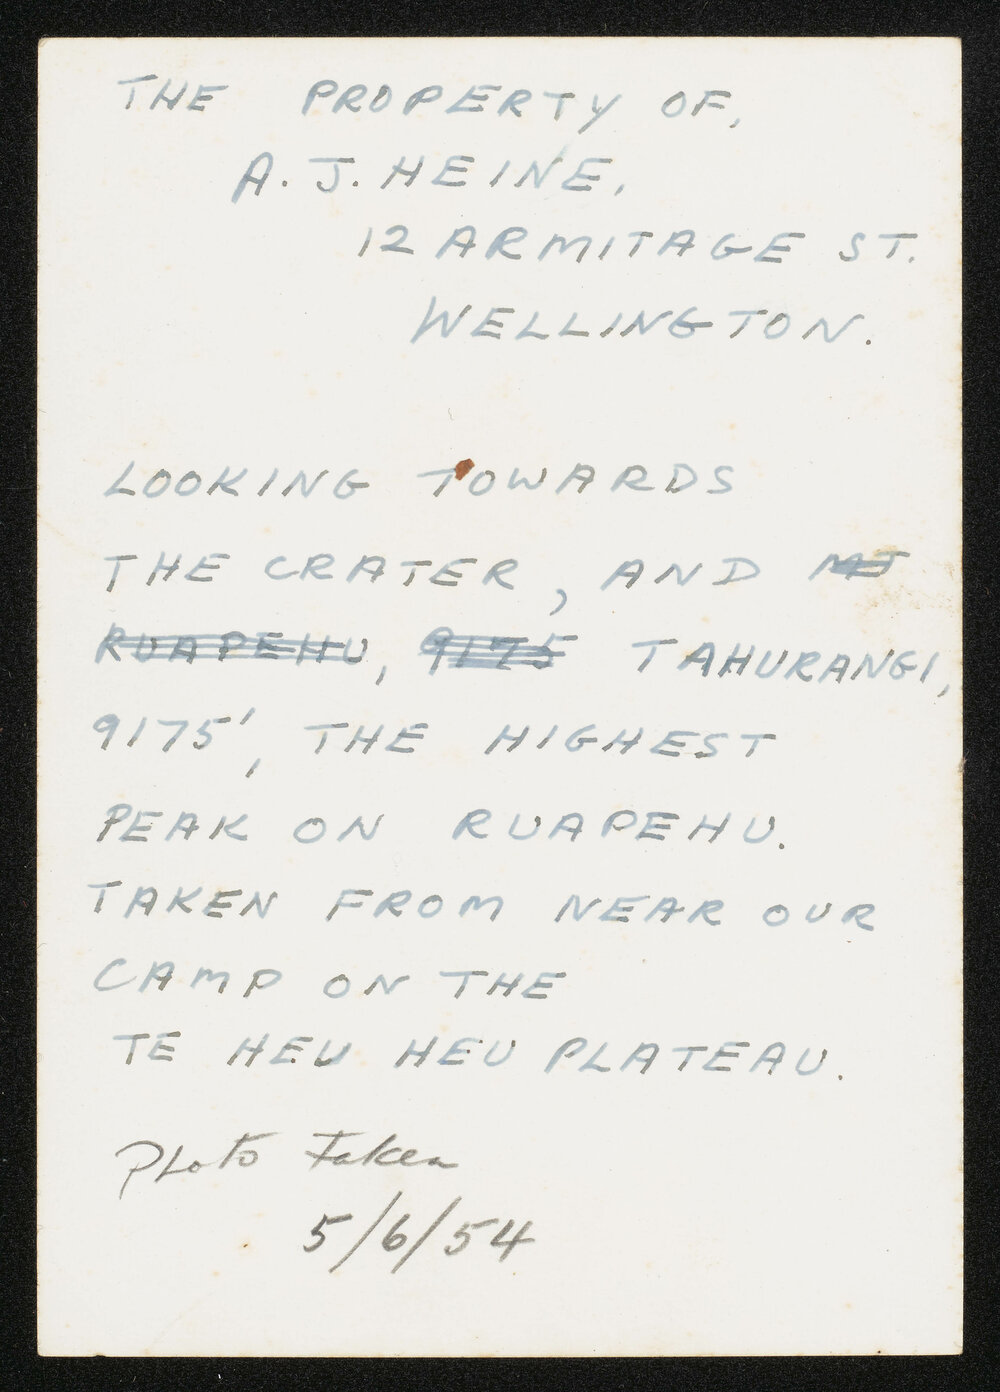 THE PROPERTY OF,
A. J. HEINE,
12 ARMITAGE ST.
WELLINGTON.
LOOKING TOWARDS
THE CRATER, AND
RUAPEHU, 9175 TAHURANGI,
9175', THE HIGHEST
PEAK ON RUAPEHU.
TAKEN FROM NEAR OUR
CAMP ON THE
TE HEU HEU PLATEAU.
Photo Taken
5/6/54